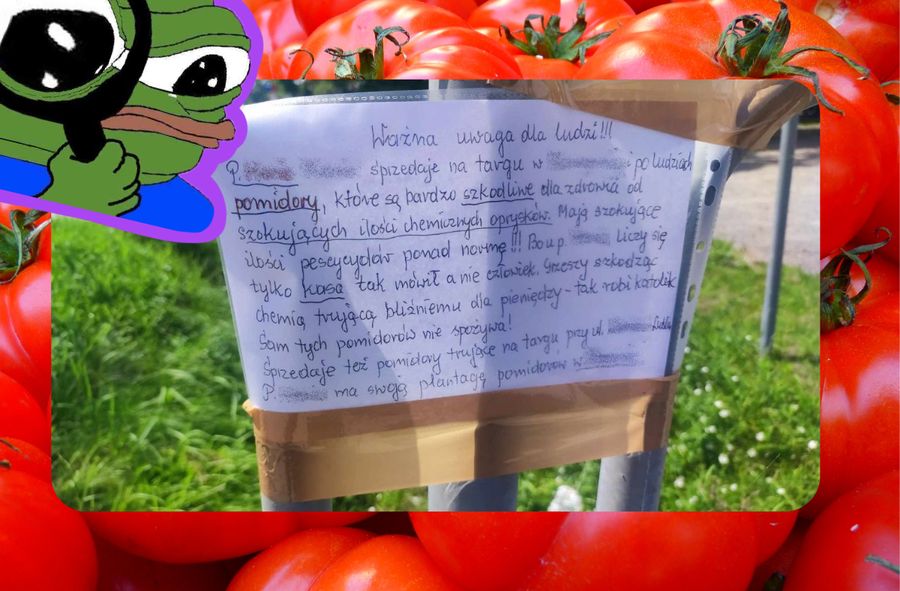 Ważna uwaga dla ludzi!!!
P. sprzedaje na targu w i po ludziach
pomidory, które są bardzo szkodliwe dla zdrowia od
szokujących ilości chemicznych oprysków. Mają szokujące
ilości pesycydów ponad normę!!! Bo u p. liczy się
tylko kasa tak mówił a nie człowiek. Grzeszy szkodząc
chemią trującą bliźniemu dla pieniędzy - tak robi katolik
Sam tych pomidorów nie spożywa!
Sprzedaje też pomidory trujące na targu przy ul.
P. ma swoją plantację pomidorów w